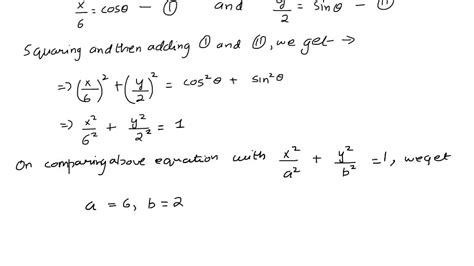 x/6 = cosθ — ① and y/2 = sinθ — ②
Squaring and then adding ① and ②, we get →
⇒ (x/6)² + (y/2)² = cos²θ + sin²θ
⇒ x²/6² + y²/2² = 1
On comparing above equation with x²/a² + y²/b² = 1, we get
a = 6, b = 2